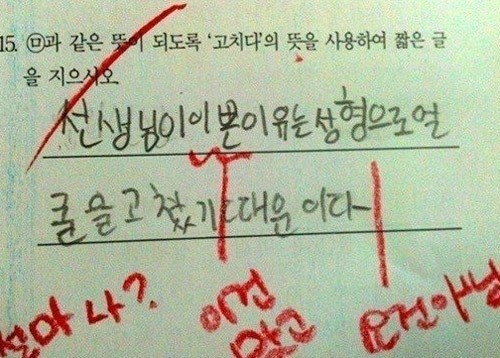 15. ㉤과 같은 뜻이 되도록 '고치다'의 뜻을 사용하여 짧은 글
을 지으시오
선생님이 이쁜이유는 성형으로 얼
굴을 고쳤기 때문이다
설마 나?. 이건 요건아님
맞고